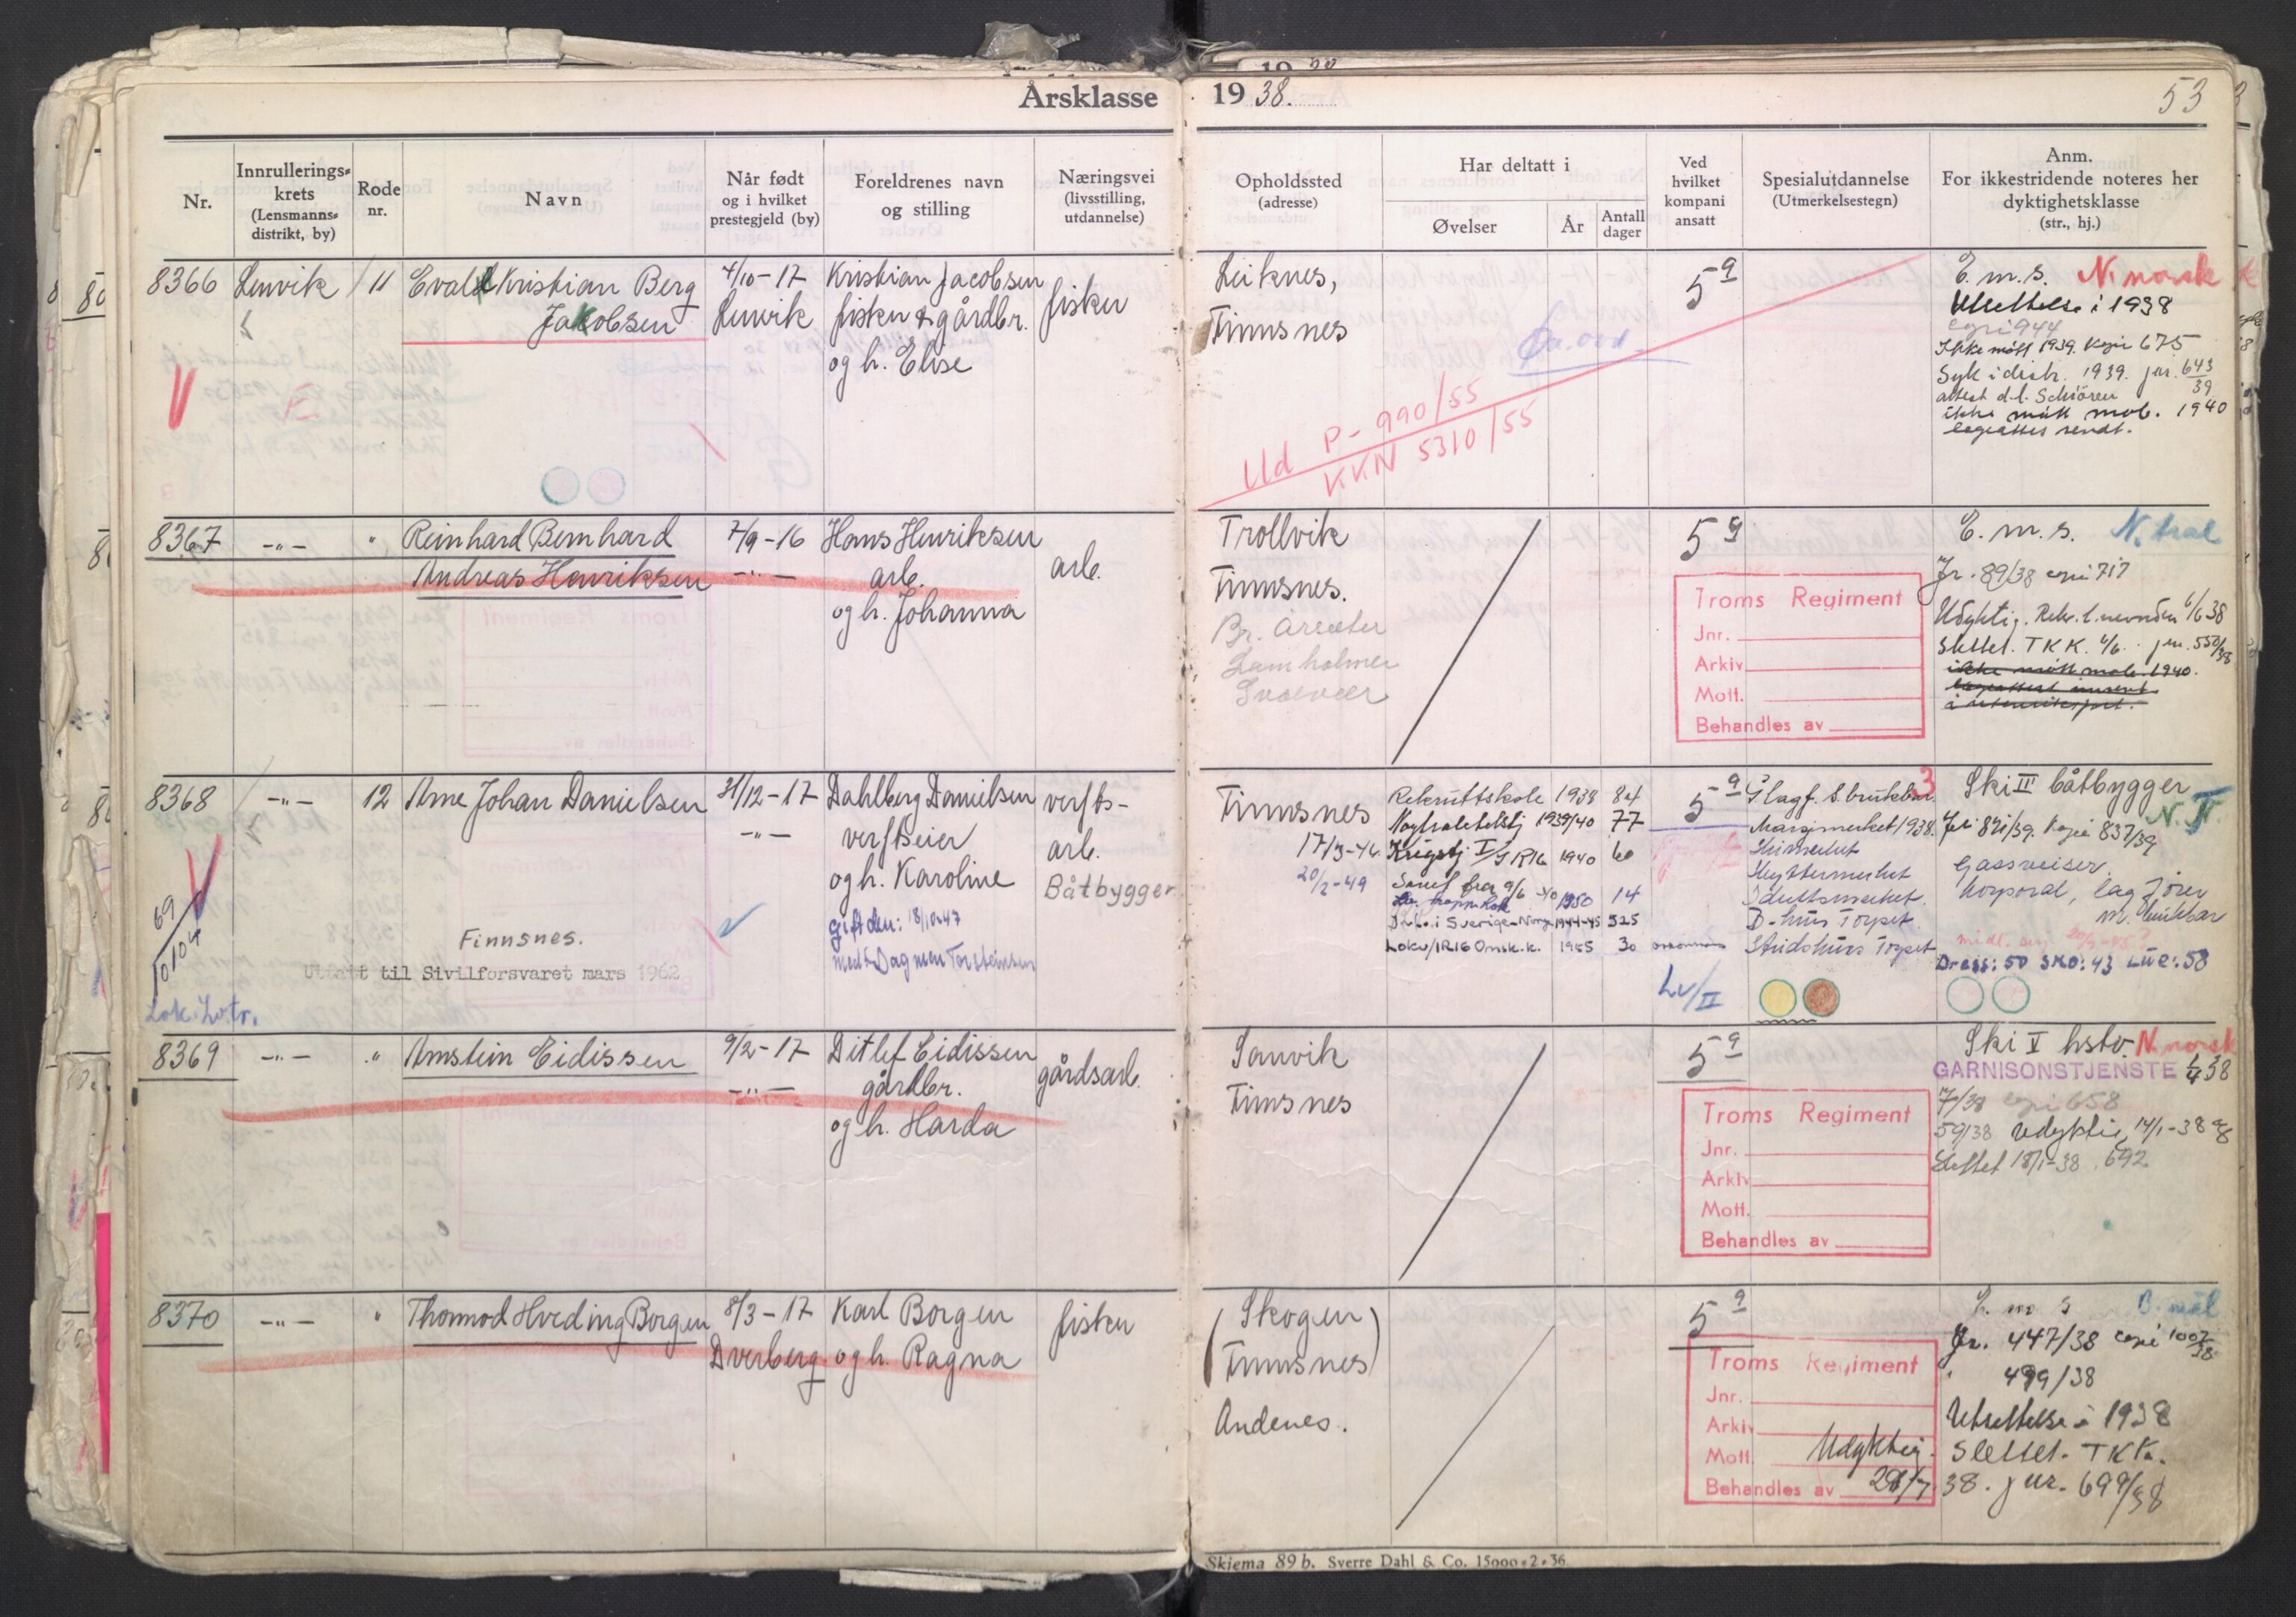 Årsklasse 1938.
53
Nr.
Innrullerings-
krets
(Lensmanns-
distrikt, by)
Rode
nr.
Navn
Når født
og i hvilket
prestegjeld (by)
Foreldrenes navn
og stilling
Næringsvei
(livsstilling,
utdannelse)
Opholdssted
(adresse)
Har deltatt i
Øvelser
År
Antall
dager
Ved
hvilket
kompani
ansatt
Spesialutdannelse
(Utmerkelsestegn)
Anm.
For ikkestridende noteres her
dyktighetsklasse
(str., hj.)
8366
Lenvik
11
Evald Kristian Berg
Jakobsen
4/10-17
Lenvik
Kristian Jacobsen
fisker & gårdbr.
og h. Elise
fisker
Leiknes,
Finnsnes
Ud P-990/55
KKN 5310/55
5 9
E. m. s. N. norsk
Utsettelse i 1938
copi 944
Ikke møtt 1939. Kopi 675
Syk i distr. 1939. jnr. 643/39
attest d.l. Schiören
ikke møtt mob. 1940
legeattest sendt.
8367
-"-
"
Reinhard Bernhard
Andreas Henriksen
7/9-16
-"-
Hans Henriksen
arb.
og h. Johanna
arb.
Trollvik
Finnsnes.
Svolvær
5 9
Troms Regiment
Jnr.
Arkiv
Mott.
Behandles av
E. m. s. N. tral
Jr. 89/38 copi 717
Udyktig. Rekr. l. nevnden 6/6 38
Slettet. TKK. 4/6 jnr. 550/38
ikke møtt mob. 1940.
8368
-"-
12
Arne Johan Danielsen
31/12-17
-"-
Dahlberg Danielsen
verftseier
og h. Karoline
gift den: 18/10-47
med Dagmar Torsteinsen
verfts-
arb.
Båtbygger
69
10104
Finnsnes.
Utfatt til Sivilforsvaret mars 1962
Lok. Lv.tr.
Finnsnes
17/3-46.
20/2-49
Rekruttskole 1938 84
Nøytralitetstj 1939/40 77
Krigstj I/IR16 1940 60
1950 14
D.t. i Sverige-Norge 1944-45 525
Lokv/IR16 Omsk.k. 1955 30
5 9
Lv/II
3
Glagf. S. brukbar.
Marsjmerket 1938.
Skimerket
Skyttermerket
Idrettsmerket.
D-kurs Torpet
Stridskurs Torpet
Ski III båtbygger
N. N.
Jnr 821/39. Kopi 837/39
Gassreiser.
Korporal, lagfører
m. brukbar
Dress: 50 SKO: 43 LUE: 58
8369
-"-
"
Arnstein Eidissen
9/2-17
-"-
Ditlef Eidissen
gårdbr.
og h. Harda
gårdsarb.
Sanvik
Finnsnes
5 9
Troms Regiment
Jnr.
Arkiv
Mott.
Behandles av
Ski V hstv. N. norsk
GARNISONSTJENSTE 4/4 38
7/38 copi 658
59/38 Udyktig 14/1-38
Slettet 18/1-38. 692
8370
-"-
"
Thormod Hveding Borgen
8/3-17
Dverberg
Karl Borgen
og h. Ragna
fisker
(Skogen
Finnsnes)
Andenes.
5 9
Troms Regiment
Jnr.
Arkiv
Mott.
Behandles av
Udyktig.
E. m. s. B. mål
Jr. 447/38 copi 1007/38
" 499/38
Utsettelse i 1938
Slettet. TKK.
38. jnr. 699/38
Skjema 89 b. Sverre Dahl & Co. 15000-2-36